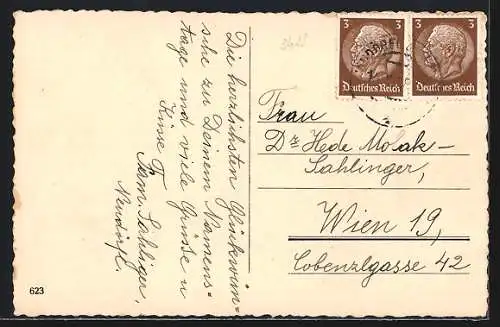 Die herzlichsten Glückwün-
sche zu Deinem Namens-
tage und viele Grüsse u
Küsse
Sahliger,
Neudörfl.
3 3
Deutsches Reich Deutsches Reich
Frau
Dr Hede Molak-
Sahlinger,
Wien 19,
Cobenzlgasse 42
623